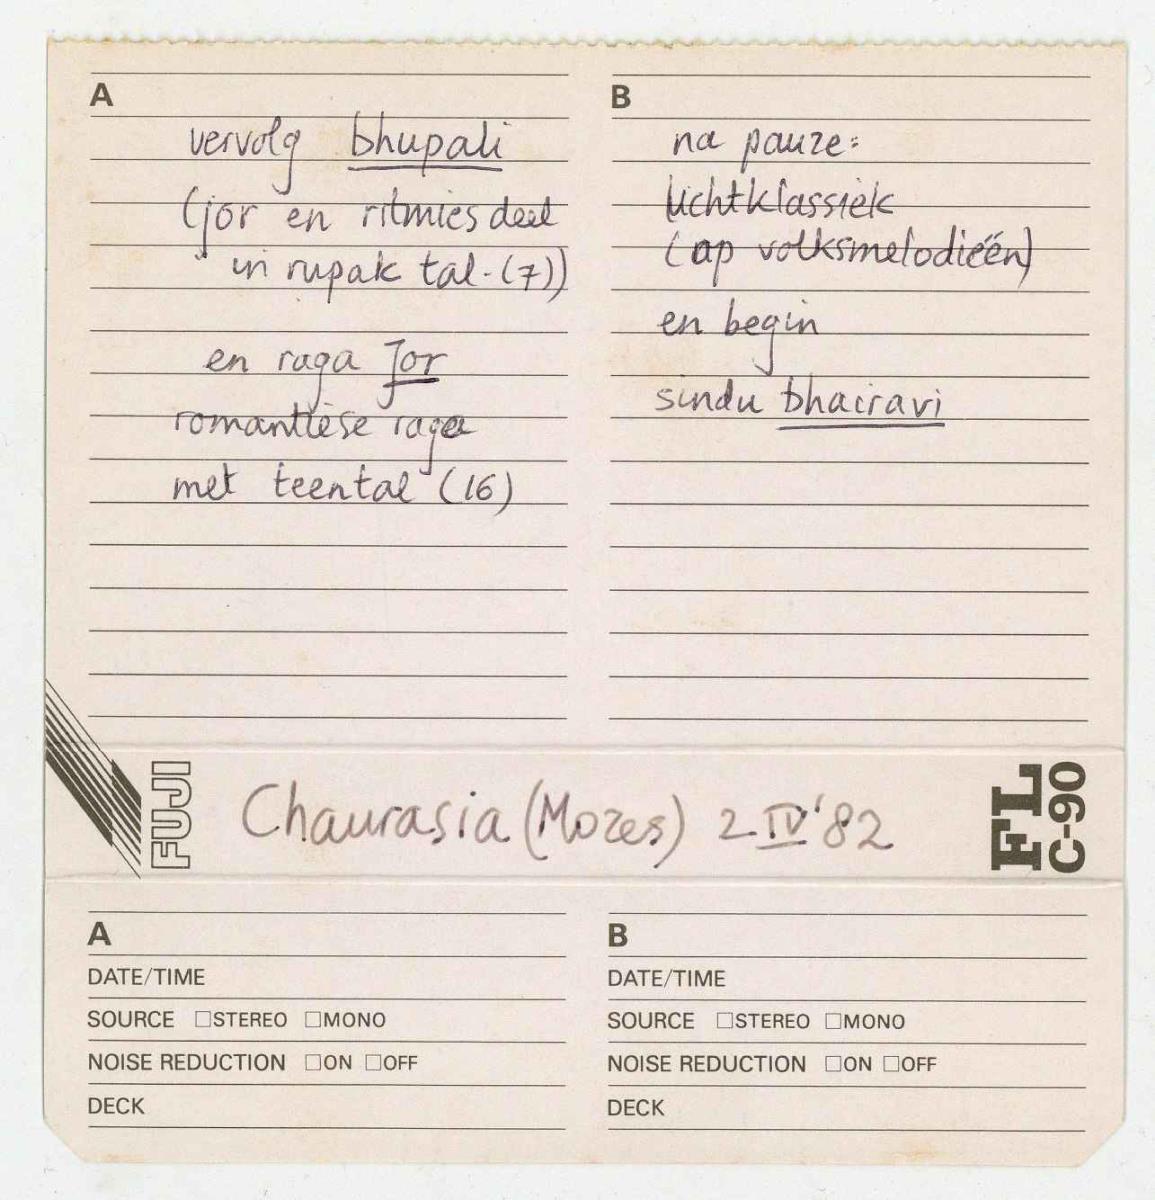 A
vervolg bhupali
(jor en ritmies deel
in rupak tal-(7))
en raga Jor
romantiese raga
met teental (16)
B
na pauze:
lichtklassiek
(op volksmelodieën)
en begin
sindu bhairavi
FUJI
Chaurasia (Mozes) 2 IV '82
FL
C-90
A
DATE/TIME
SOURCE □STEREO □MONO
NOISE REDUCTION □ON □OFF
DECK
B
DATE/TIME
SOURCE □STEREO □MONO
NOISE REDUCTION □ON □OFF
DECK